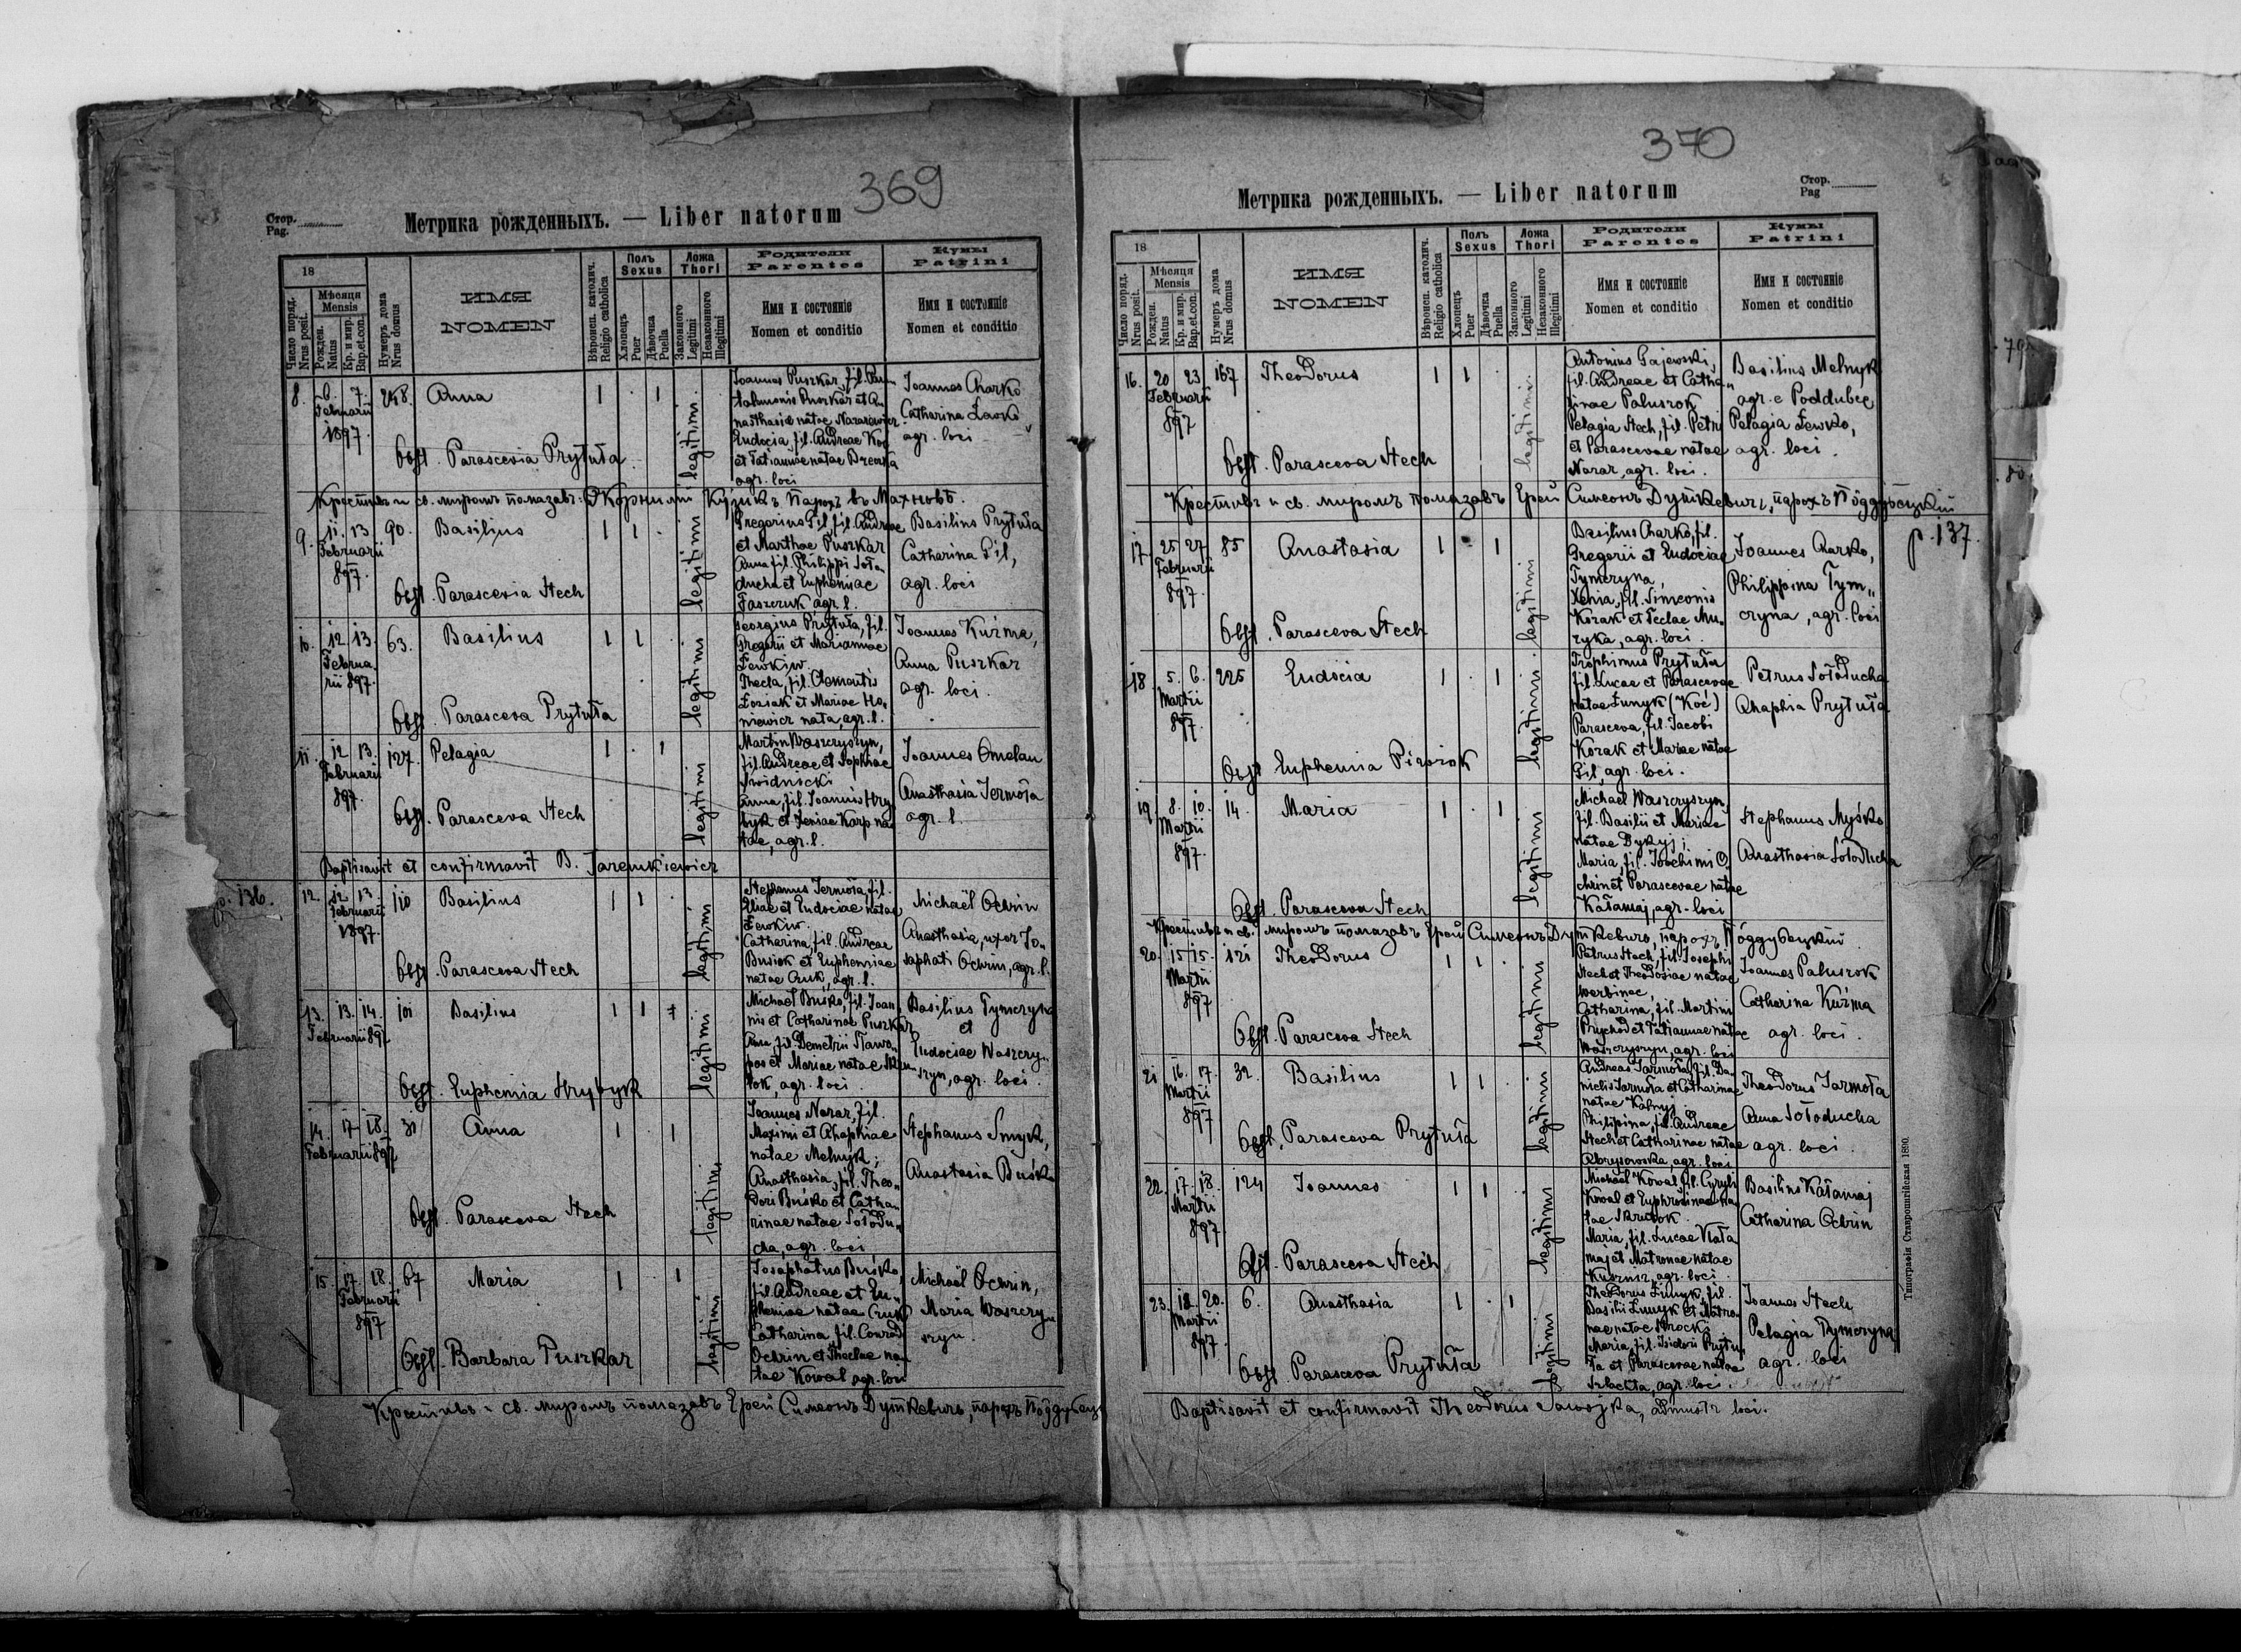 369
Стор.
Pag.
Метрика рожденныхъ. — Liber natorum
18
Число поряд.
Nrus posit.
Мѣсяця
Mensis
Рожден.
Natus
Кр. и мир.
Bap.et.con.
Нумеръ дома
Nrus domus
ИМЯ
NOMEN
Вѣроисп. католич.
Religio catholica
Полъ
Sexus
Хлопецъ
Puer
Дѣвочка
Puella
Ложа
Thori
Законного
Legitimi
Незаконного
Illegitimi
Родители
Parentes
Имя и состояніе
Nomen et conditio
Кумы
Patrini
Имя и состояніе
Nomen et conditio
8. 6. 7 Februarii 1897. Anna 1 . 1 legitimi
Joannes Puszkar, fil. Pan
Puszkar et A
nasthasiae natae
Eudocia, fil. Andreae
et Tatiannae natae
agr. loci
Joannes Charko
Catharina
agr. loci
Obst. Parascevia Prytuła
Крестивъ и св. миромъ помазавъ: Парохъ въ Махновѣ.
9. 11. 13 Februarii 897. 90. Basilius 1 1 . legitimi
Gregorius Gil, fil. Andreae
et Marthae Puszkar
Anna fil. Philippi Soło
ducha et Eupheniae
agr. l.
Basilius Prytuła
Catharina Gil,
agr. loci
Obst. Parascevia Stech
10. 12. 13. Februa-
rii 897. 63. Basilius 1 1 legitimi
Georgius Prytuła, fil.
Gregorii et Mariannae
Thecla, fil. Clementis
et Mariae Ho-
niewicz nata, agr. l.
Joannes Kuźma,
Anna Puszkar
agr. loci.
Obst. Parasceva Prytuła
11. 12 13. Februarii 897. 127. Pelagia 1 . 1 legitimi
Martin Waszczyszyn,
fil. Andreae et Sophiae
Swidnicki
Anna, fil. Joannis Hry
byk et Xeniae Karp na
tae, agr. l.
Joannes Omelan
Anasthasia Jermoła
agr. l.
Obst. Parasceva Stech
Baptisavit et confirmavit B. Jaremkiewicz
p. 136.
12. 12 13. Februarii 1897. 110 Basilius 1 1 . legitimi
Stephanus Jermoła, fil.
Eliae et Eudociae natae
Catharina, fil. Andreae
Busiok et Eupheniae
natae Cruk, agr. l.
Michaël Ochrin
Anasthasia, uxor Jo-
saphati Ochrin, agr. l.
Obst. Parasceva Stech
13. 13. 14. Februarii 897 101 Basilius 1 1 legitimi
Michaël Buśko, fil. Joan
nis et Catharinae Puszkar
Anna, fil. Demetrii
et Mariae natae
agr. loci.
Basilius Tymczyna
et
Eudociae Waszczy-
szyn, agr. loci.
Obst. Euphemia Hrybyk
14. 17 18. Februarii 897 31 Anna 1 . 1 legitimi
Joannes Nazar, fil.
Maximi et Ahaphiae
natae Melnyk;
Anasthasia, fil. Theo-
dori Buśko et Catha-
rinae natae Sołodu-
cha, agr. loci
Stephanus Smyk,
Anastasia Buśko
Obst. Parasceva Stech
15. 17. 18. Februarii 897 67 Maria 1 . 1 legitimi
Josaphatus Buśko,
fil. Andreae et Eu-
pheniae natae Cruk
Catharina, fil. Conrad
Ochrin et Theclae na-
tae Kowal agr. loci
Michaël Ochrin,
Maria Waszczy-
szyn.
Obst. Barbara Puszkar
Крестивъ и св. миромъ помазавъ Ерей Симеонъ Дуткевичъ, парохъ
370
Стор.
Pag
Метрика рожденныхъ. — Liber natorum
18
Число поряд.
Nrus posit.
Мѣсяця
Mensis
Рожден.
Natus
Кр. и мир.
Bap.et.con.
Нумеръ дома
Nrus domus
ИМЯ
NOMEN
Вѣроисп. католич.
Religio catholica
Полъ
Sexus
Хлопецъ
Puer
Дѣвочка
Puella
Ложа
Thori
Законного
Legitimi
Незаконного
Illegitimi
Родители
Parentes
Имя и состояніе
Nomen et conditio
Кумы
Patrini
Имя и состояніе
Nomen et conditio
16. 20 23 Februarii 897 167 Theodorus 1 1 . legitimi.
Antonius Gajewski,
fil. Andreae et Catha-
rinae Paluszok
Pelagia Stech, fil. Petri
et Parascevae natae
Nazar, agr. loci.
Basilius Melnyk
agr. e Poddubce
Pelagia Lewko,
agr. loci.
Obst. Parasceva Stech
Крестивъ и св. миромъ помазавъ Ерей Симеонъ Дуткевичъ, парохъ Поддубецкій
p. 137.
17 25 27 Februarii 897. 85 Anastasia 1 1 legitimi
Basilius Charko, fil.
Gregorii et Eudociae
Tymczyna,
Xenia, fil. Simeonis
Kozak et Teclae Mu-
zyka, agr. loci.
Joannes Charko,
Philippina Tym-
czyna, agr. loci
Obst. Parasceva Stech
18 5. 6. Martii 897. 225 Eudocia 1 . 1 legitimi
Trophimus Prytuła
fil. Lucae et Parascevae
natae Łunyk (Koć)
Parasceva, fil. Jacobi
Kozak et Mariae natae
Gil, agr. loci.
Petrus Sołoducha
Ahaphia Prytuła
Obst Euphemia
19 8. 10. Martii 897. 14. Maria 1 . 1 legitimi
Michael Waszczyszyn,
fil. Basilii et Mariae
natae Dykyj;
Maria, fil. Joachimi O
chrin et Parascevae natae
Kałamaj, agr. loci
Stephanus Myśko
Anasthasia Sołoducha
Obst. Parasceva Stech
Крестивъ и св. миромъ помазавъ Ерей Симеонъ Дуткевичъ, парохъ Поддубецкій.
20. 15 15. Martii 897 121 Theodorus 1 1 . legitimi
Petrus Stech, fil. Josephi
Stech et Theodosiae natae
Werbinae,
Catharina, fil. Martini
Prychod et Tatiannae natae
Waszczyszyn, agr. loci
Joannes Paluszok
Catharina Kuźma
agr. loci.
Obst. Parasceva Stech
21 16. 17. Martii 897 32. Basilius 1 1 legitimi
Andreas Jarmoła, fil. Da-
nielis Jarmoła et Catharinae
natae
Philipina, fil. Andreae
Stech et Catharinae natae
agr. loci
Theodorus Jarmoła
Anna Sołoducha
agr. loci.
Obst. Parasceva Prytuła
22. 17. 18. Martii 897 124 Joannes 1 1 . legitimi
Michaël Kowal, fil. Cyryli
Kowal et Euphrosinae na-
tae
Maria, fil. Lucae Kała
maj et Matronae natae
agr. loci.
Basilius Kałamaj
Catharina Ochrin
Obst. Parasceva Stech
23. 18. 20. Martii 897. 6. Anasthasia 1 . 1 legitimi
Theodorus Łunyk, fil.
Basilii Łunyk et Matro-
nae natae
Maria, fil. Isidori Prytu-
ła et Parascevae natae
Szlachta, agr. loci.
Joannes Stech
Pelagia Tymczyna
agr. loci
Obst. Parasceva Prytuła
Baptisavit et confirmavit Theodorus admnstr loci.
Типографія Ставропигійская 1890.